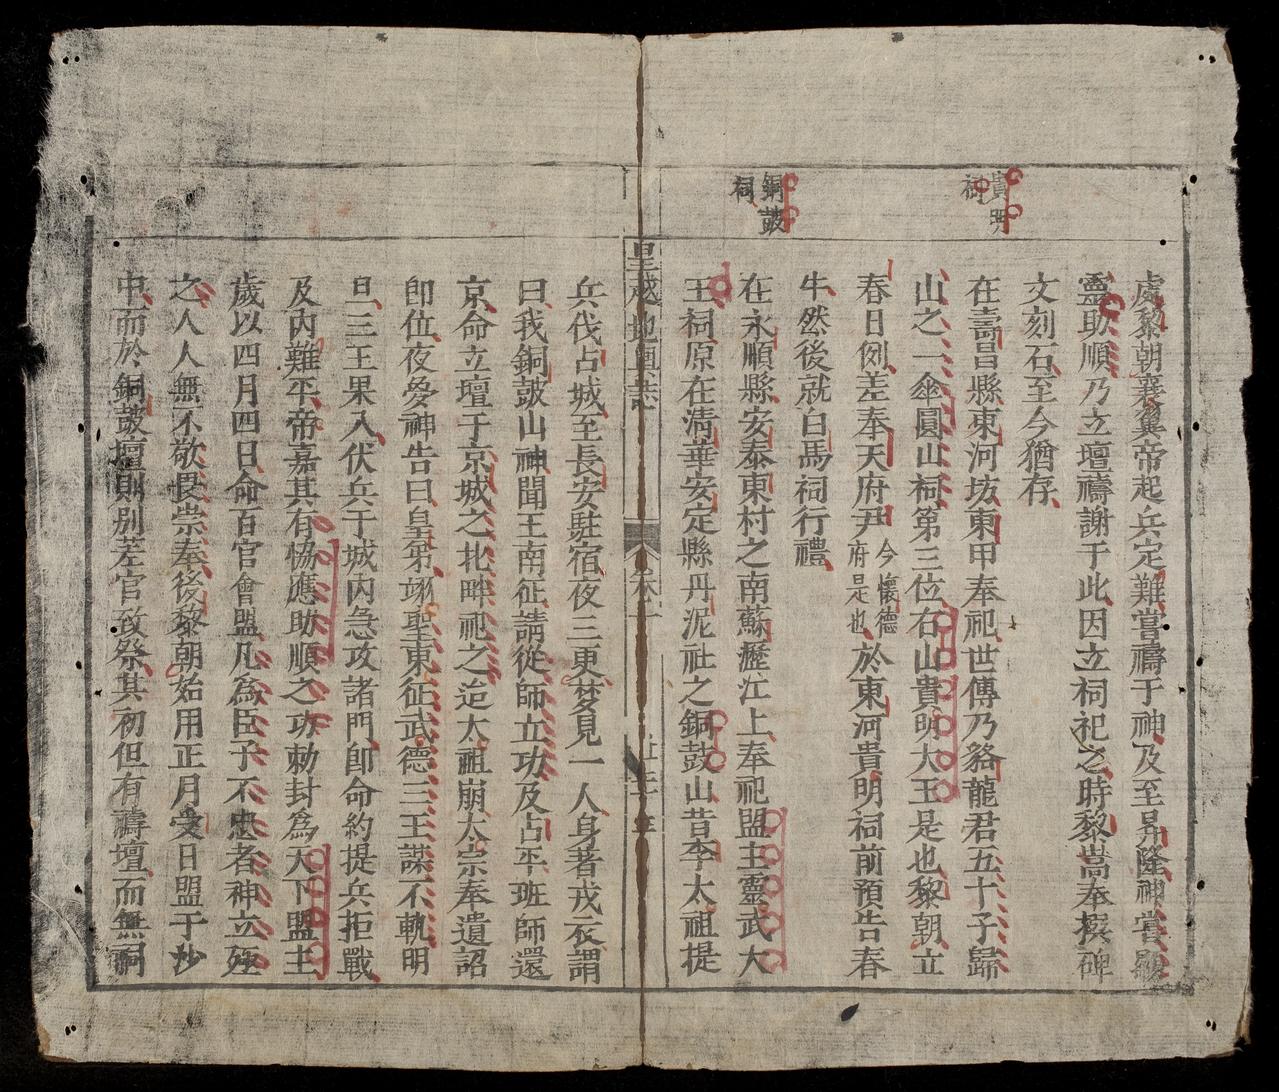 貴明
祠
銅鼓
祠
處黎朝襄翼帝起兵定難嘗禱于神及至昇隆神嘗顯
靈助順乃立壇禱謝于此因立祠祀之時黎嵩奉撰碑
文刻石至今猶存
在壽昌縣東河坊東甲奉祀世傳乃貉龍君五十子歸
山之一傘圓山祠第三位右山貴明大王是也黎朝立
春日例差奉天府尹今懷德府是也於東河貴明祠前預告春
牛然後就白馬祠行禮
在永順縣安泰東村之南蘇瀝江上奉祀盟主靈武大
王祠原在清華安定縣丹泥社之銅鼓山昔李太祖提
皇越地輿誌
卷一
兵伐占城至長安駐宿夜三更夢見一人身著戎衣謂
曰我銅鼓山神聞王南征請從師立功及占平班師還
京命立壇于京城之北畔祀之迨太祖崩太宗奉遺詔
卽位夜夢神告曰皇弟翊聖東征武德三王謀不軌明
旦三王果入伏兵于城內急攻諸門卽命約提兵拒戰
及內難平帝嘉其有恊應助順之功勅封爲天下盟主
歲以四月四日命百官會盟凡爲臣子不忠者神立殛
之人人無不敬畏崇奉後黎朝始用正月受日盟于
中而於銅鼓壇則別差官致祭其初但有禱壇而無祠